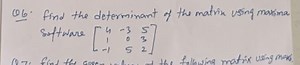 Q6: find the determinant of the matrix using maxima
Software [ 4 -3 5
1 0 3
-1 5 2 ]
find the
the following matrix using